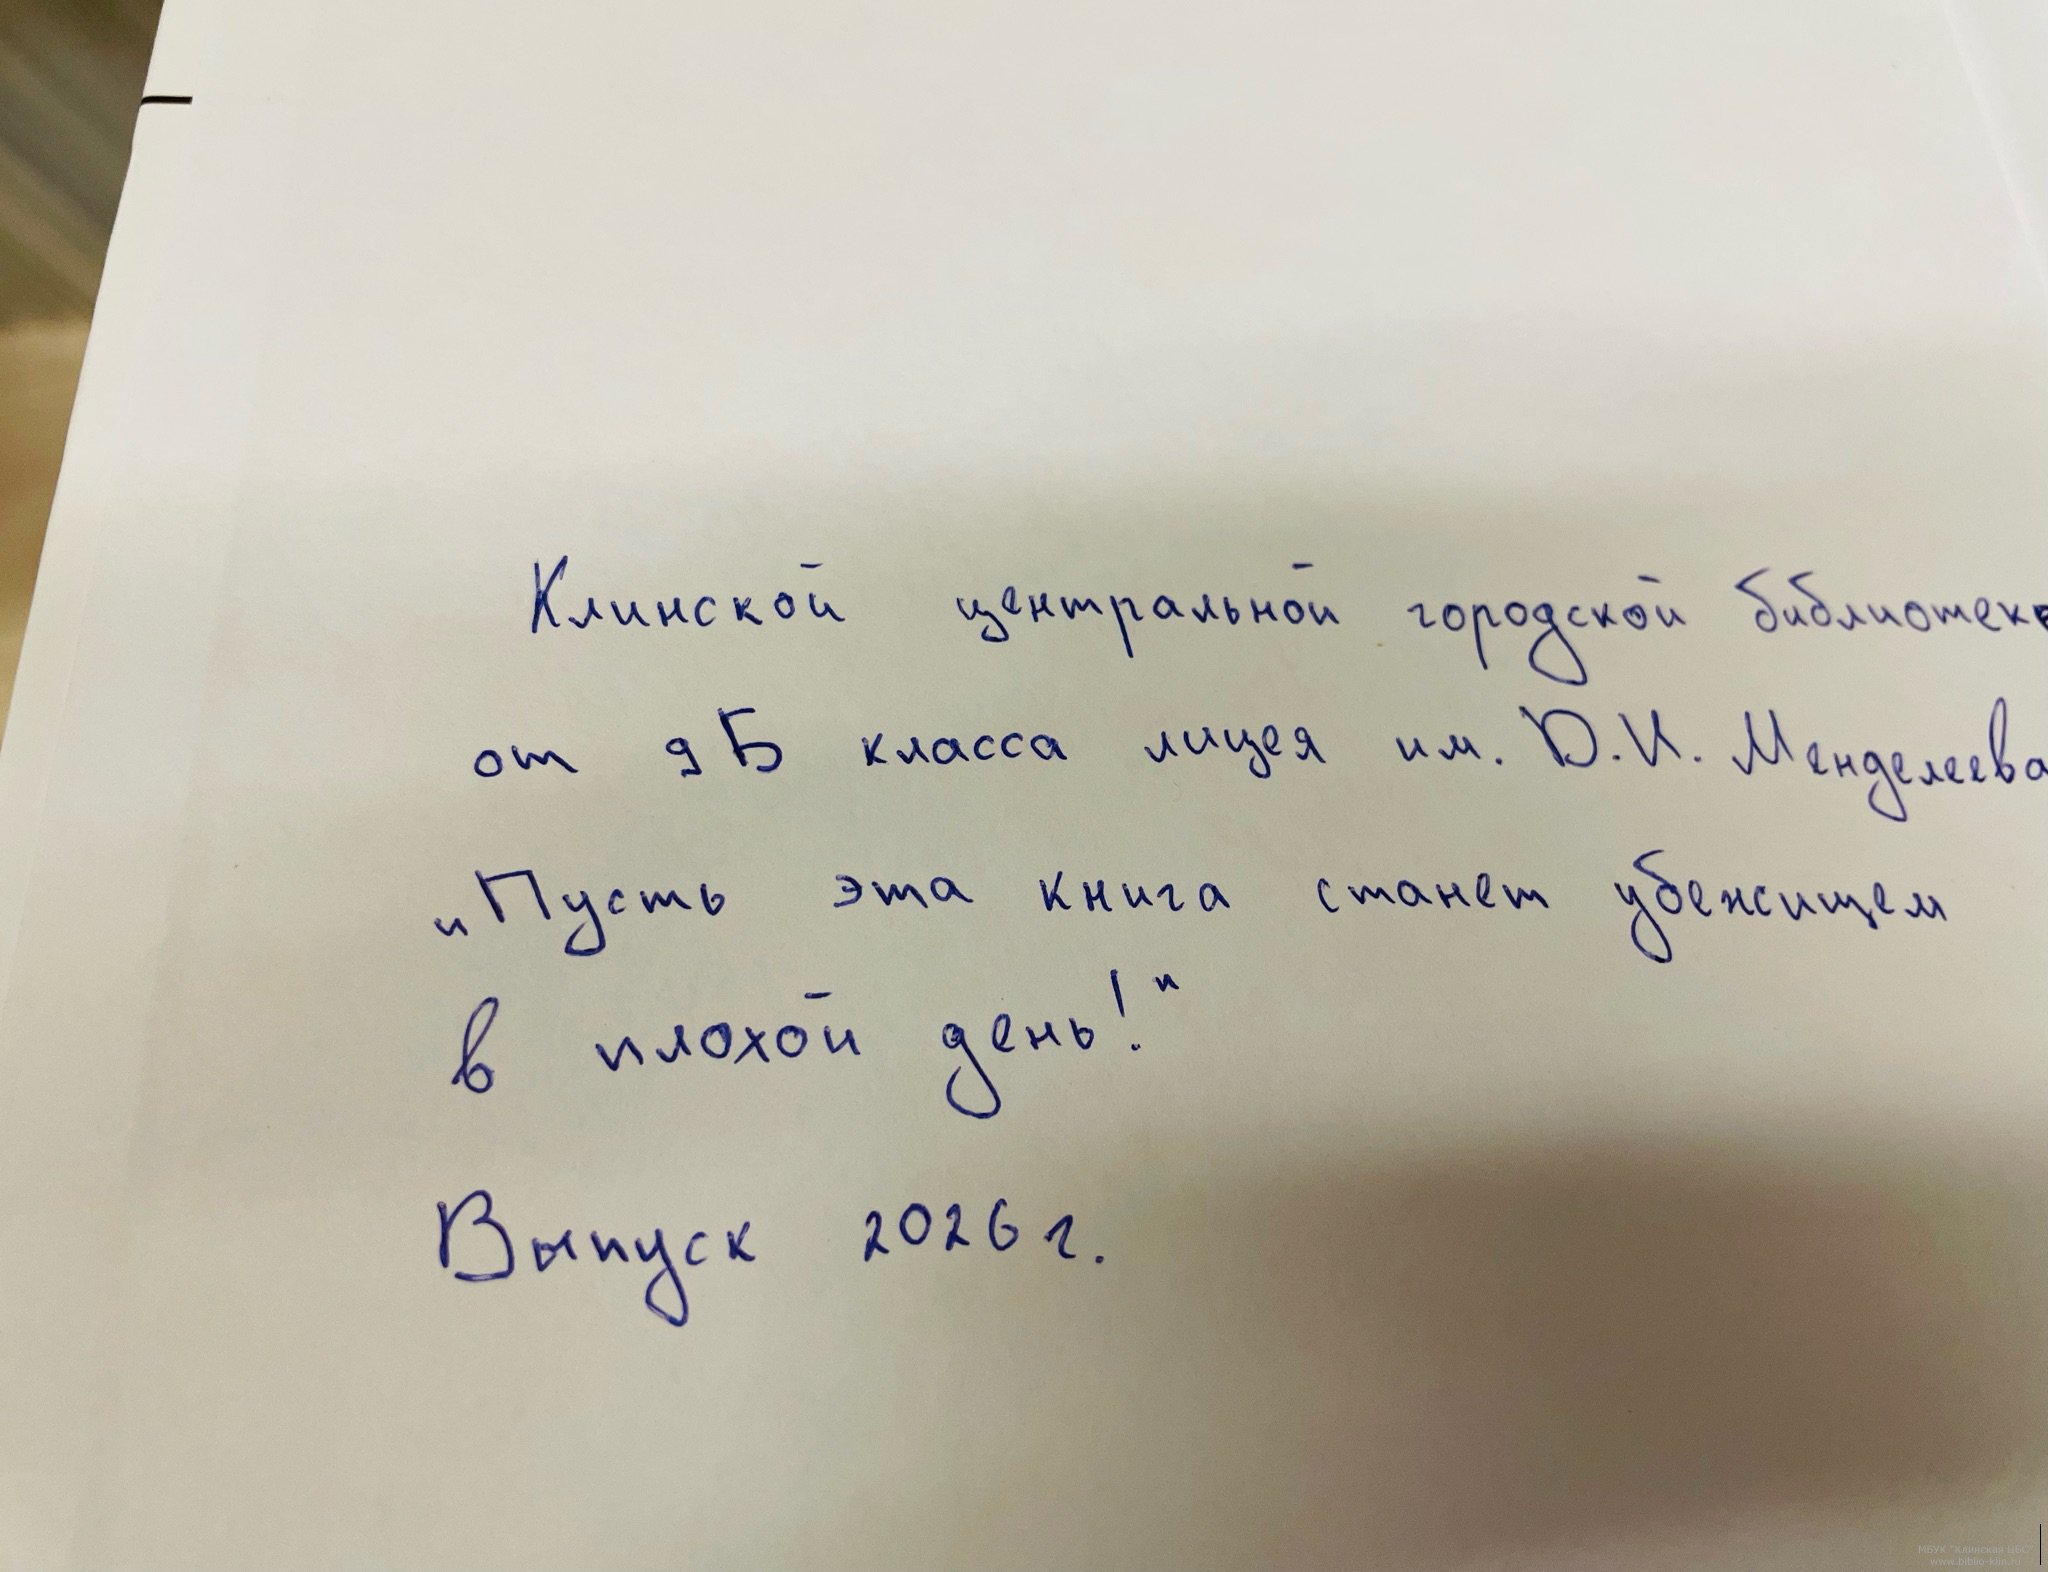 Клинской центральной городской библиотеке
от 9Б класса лицея им. Д.И. Менделеева
„Пусть эта книга станет убежищем
в плохой день!"
Выпуск 2026 г.
МБУК "Клинская ЦБС"
www.biblio-klin.ru